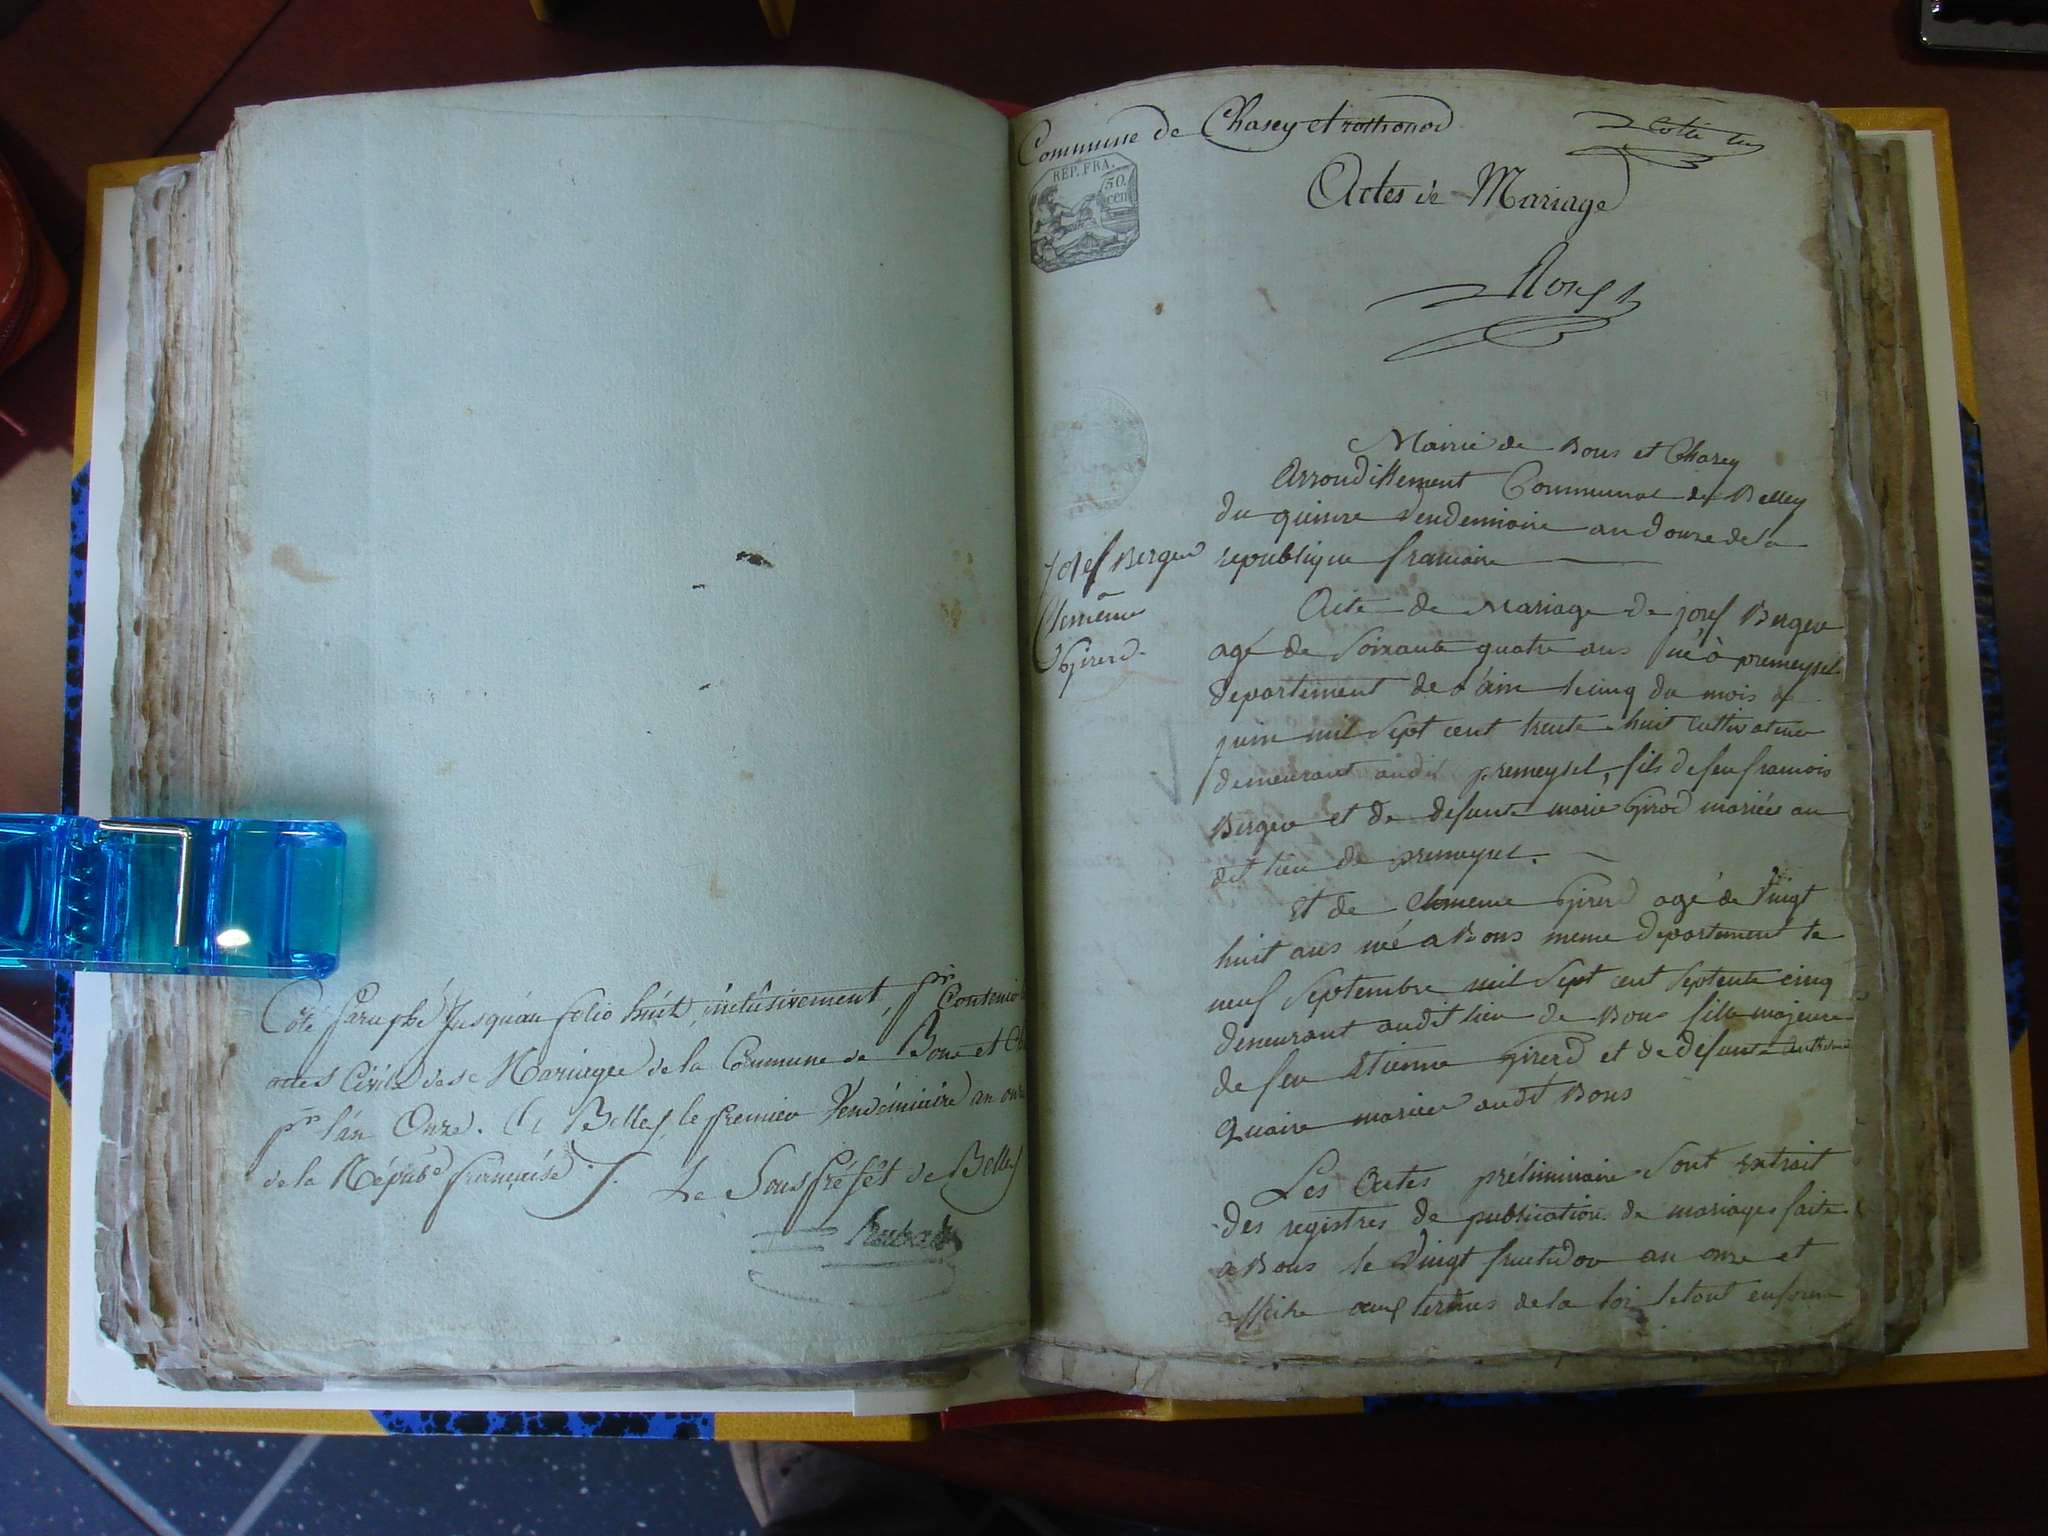 Coté Paraphé jusqu'au folio huit inclusivement, pr Contenir
actes Civils de Mariages de la Commune de Bons et Ch
pr l'an Onze. à Belley, le premier Vendémiaire an onze
de la Répub^e française.
Le Sous préfet de Belley
Commune de Chasey et rothonod
REP. FRA.
50.
cen
Actes de Mariage
Mairie de Bons et Chasey
Arrondissement Communal de Belley
du quinze vendemiaire an douze de la
republique francaise
josef Berger
Clemence
Girerd
Acte de Mariage de josef Berger
agé de Soixante quatre ans né à premeysel
departement de l'ain le cinq du mois de
juin mil Sept cent trente huit cultivateur
demeurant audit premeysel, fils de feu francois
Berger et de defunte marie Girod mariés au
dit lieu de premeysel.
Et de Girerd agé de Vingt
huit ans né a Bons meme departement le
neuf Septembre mil Sept cent Septente cinq
demeurant audit lieu de Bons fille majeure
de feu Etienne Girerd et de defunte
Quaire mariés audit Bons
Les Actes préliminaire Sont extrait
des registres de publication de mariages faite
a Bons le Vingt fructidor an onze et
affiche aux termes de la loi le tout en forme